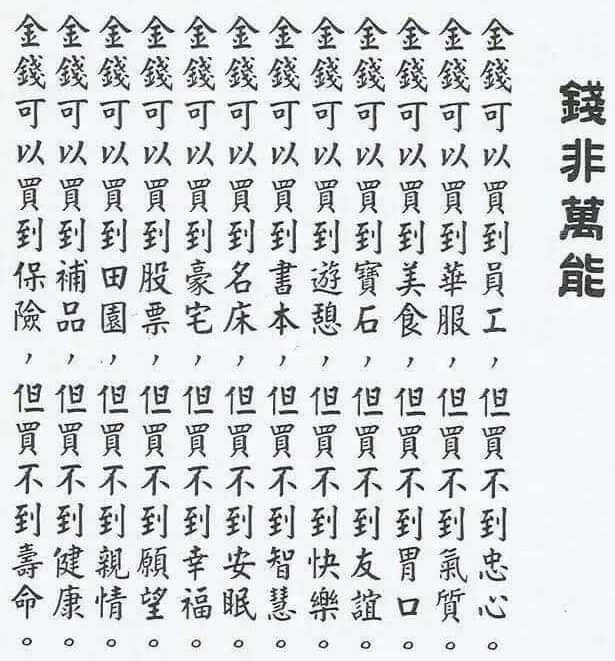 錢非萬能
金錢可以買到員工，但買不到忠心。
金錢可以買到華服，但買不到氣質。
金錢可以買到美食，但買不到胃口。
金錢可以買到寶石，但買不到友誼。
金錢可以買到遊憩，但買不到快樂。
金錢可以買到書本，但買不到智慧。
金錢可以買到名床，但買不到安眠。
金錢可以買到豪宅，但買不到幸福。
金錢可以買到股票，但買不到願望。
金錢可以買到田園，但買不到親情。
金錢可以買到補品，但買不到健康。
金錢可以買到保險，但買不到壽命。